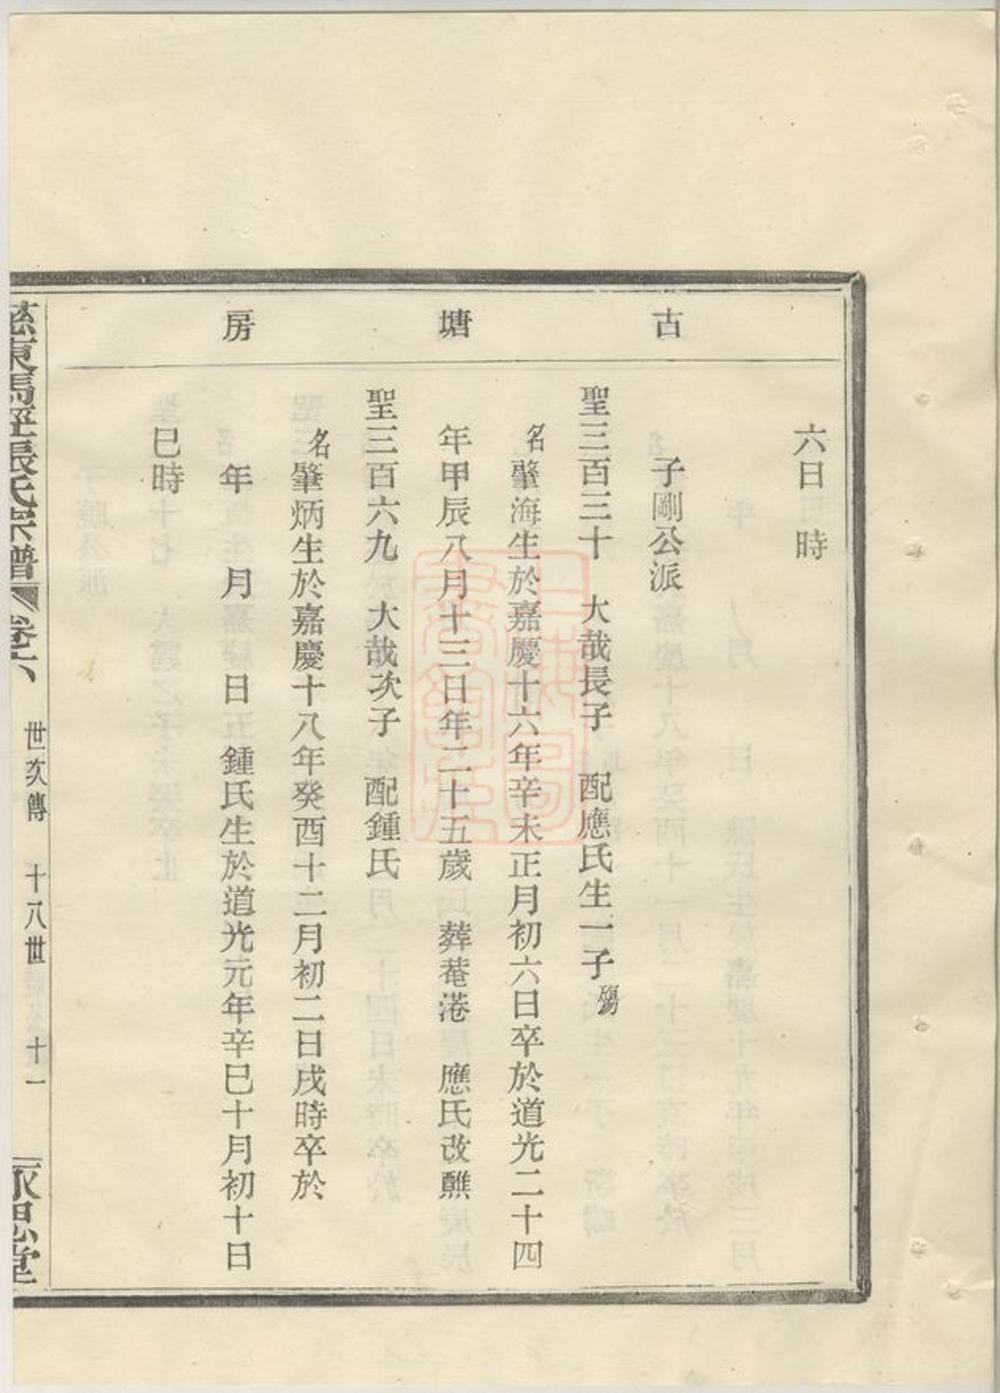 古塘房
六日　時
子剛公派
聖三百三十　大哉長子　配應氏生一子殤
名肇海生於嘉慶十六年辛未正月初六日卒於道光二十四
年甲辰八月十三日年二十五歲　葬菴港　應氏改醮
聖三百六九　大哉次子　配鍾氏
名肇炳生於嘉慶十八年癸酉十二月初二日戌時卒於
年　月　日　鍾氏生於道光元年辛巳十月初十日
巳時
慈東馬徑張氏宗譜　卷六　世次傳　十八世　十一　永思堂